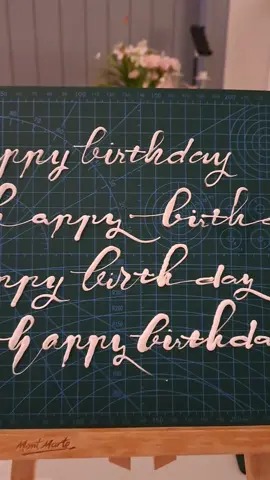 appy birthday
h appy birth d
appy birth day
h appy birthda
Mont Marte